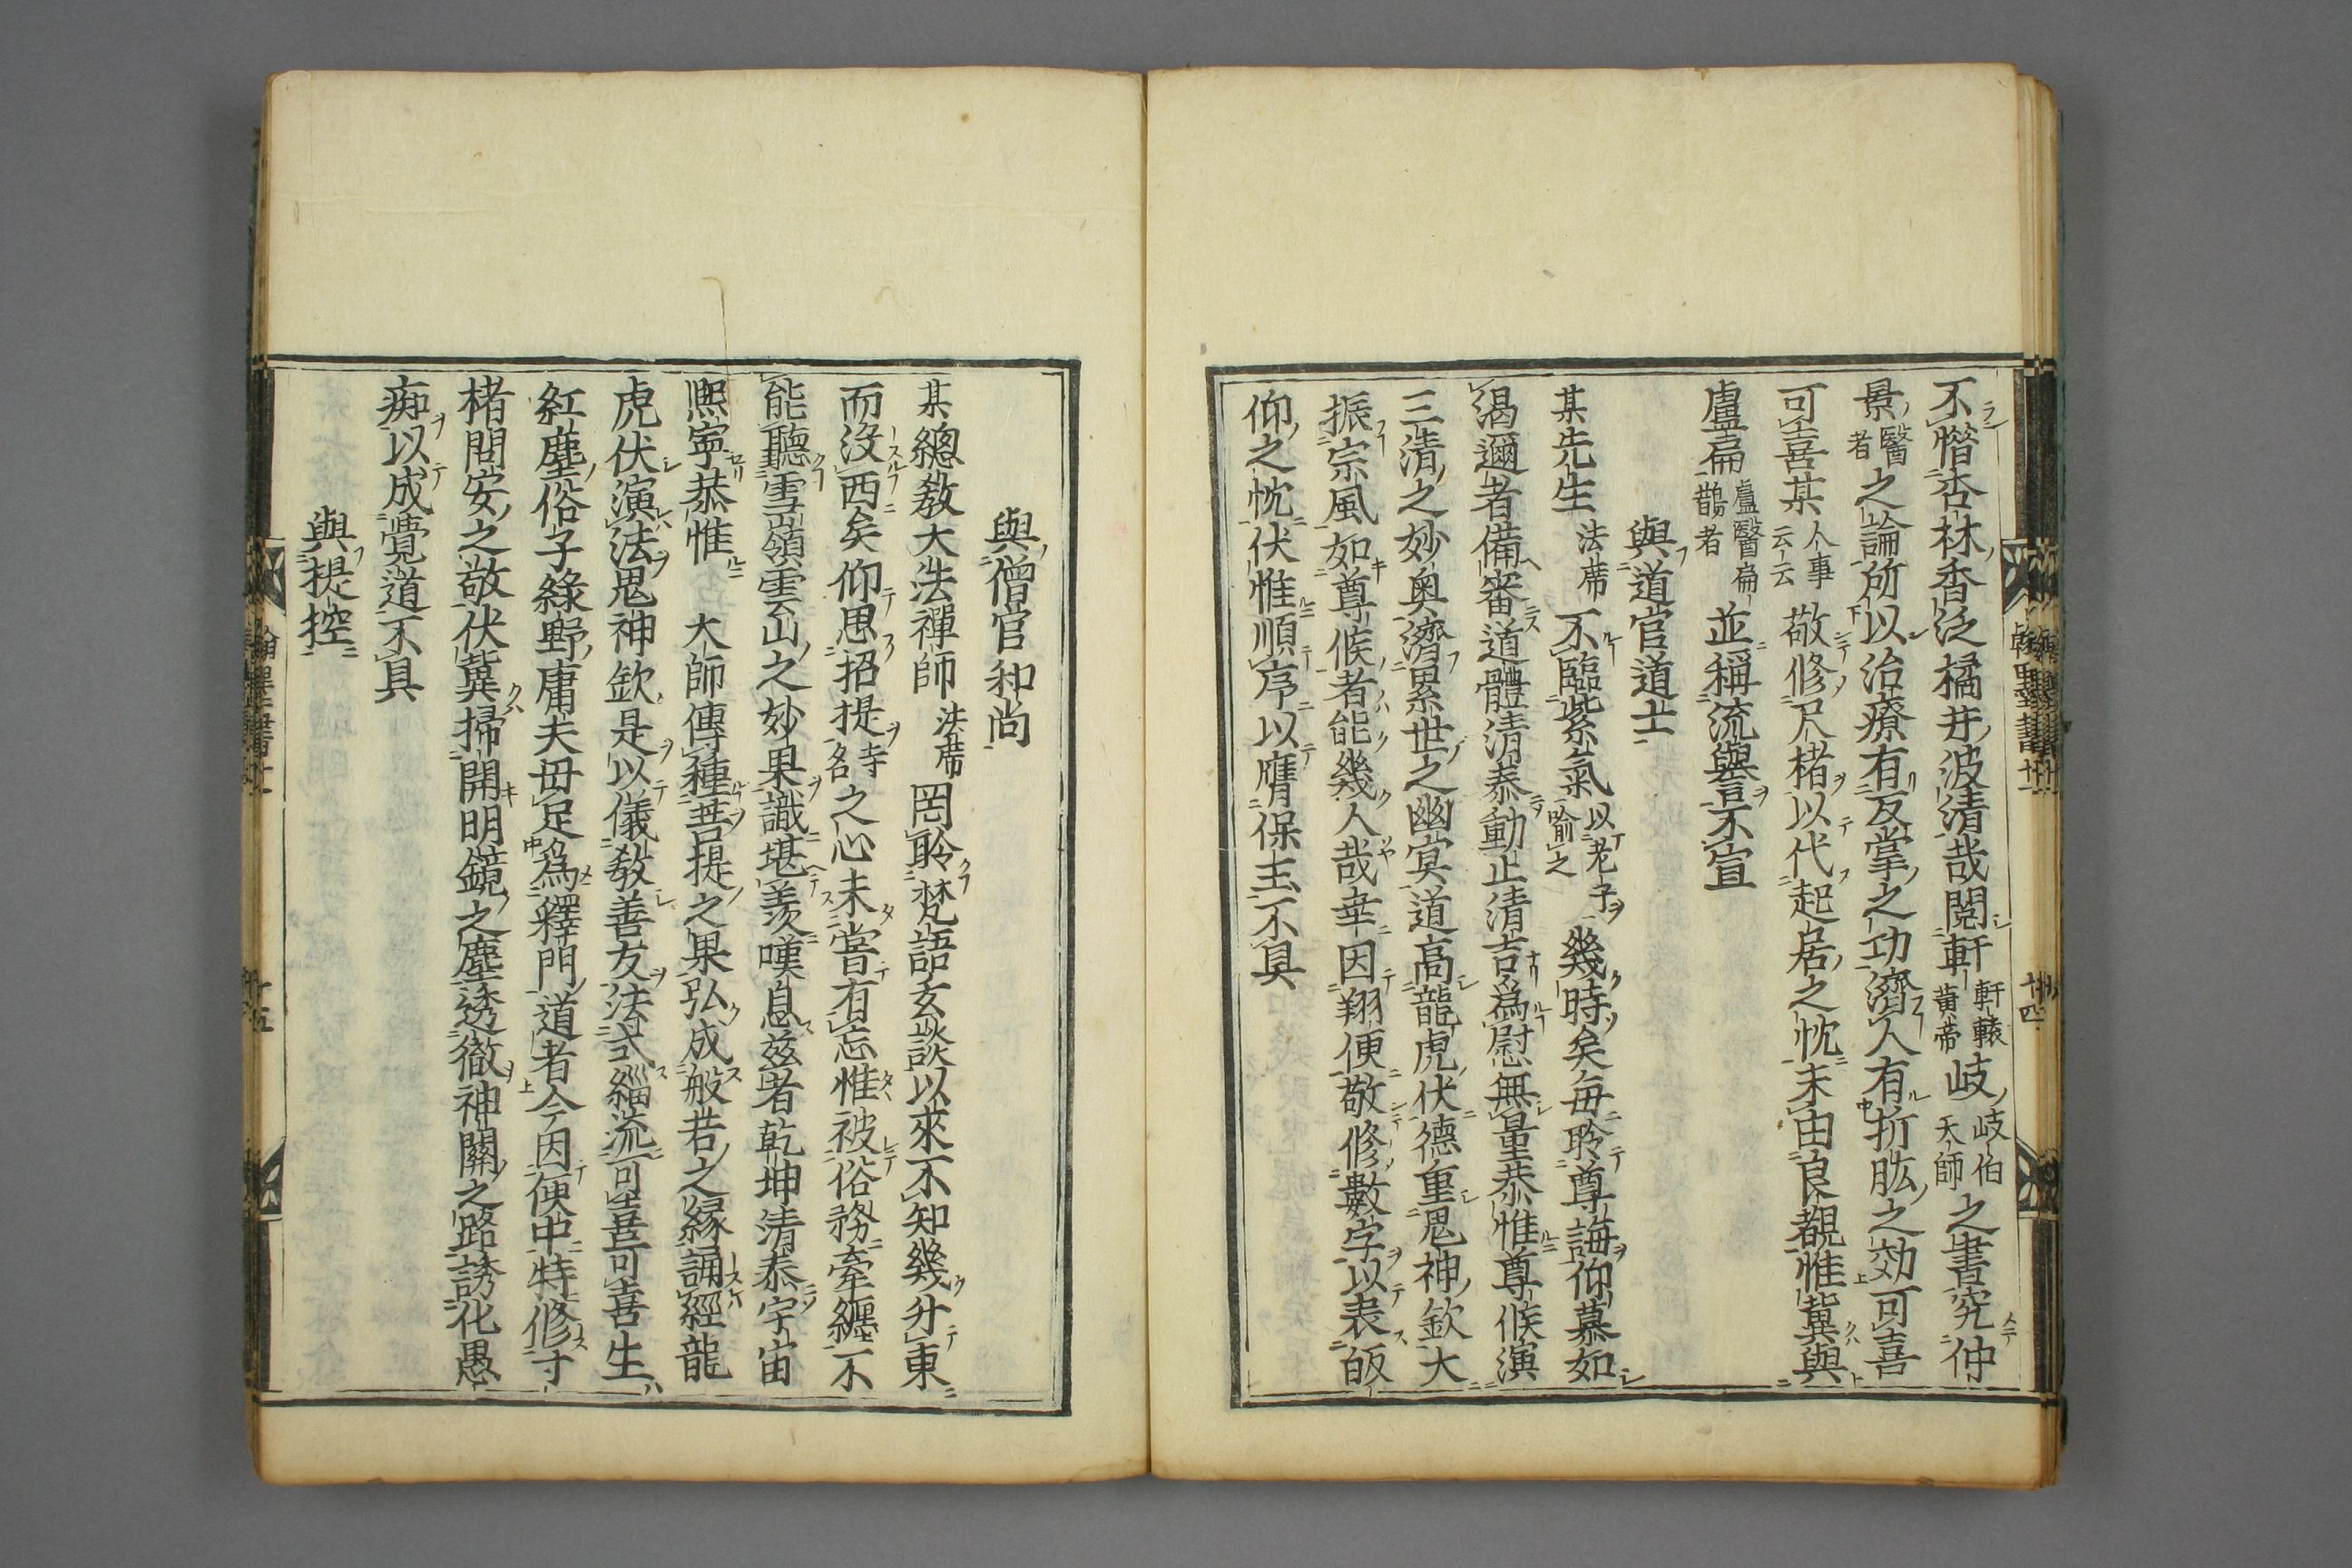 不憯杏林香泛橘井波清哉閱軒軒轅黃帝岐岐伯天師之書究仲
景醫者之論所以治療有反掌之功濟人有折肱之効可喜
可喜某人事云云敬修尺楮以代起居之忱未由良覩惟冀與
盧扁盧醫扁鵲者並稱流譽不宣
與道官道士
某先生法席不臨紫氣以老子喻之幾時矣每聆尊誨仰慕如
渴邇者備審道體清泰動止清吉為慰無量恭惟尊候演
三清之妙奥濟累世之幽冥道高龍虎伏德重鬼神欽大
振宗風如尊候者能幾人哉幸因翔便敬修數字以表皈
仰之忱伏惟順序以膺保玉不具
與僧官和尚
某總教大法禪師法席罔聆梵語玄談以來不知幾升東
而沒西矣仰思招提寺名之心未嘗有忘惟被俗務牽纏不
能聽雪嶺雲山之妙果識堪羨嘆息茲者乾坤清泰宇宙
熈寧恭惟大師傳種菩提之果弘成般若之緣誦經龍
虎伏演法鬼神欽是以儀教善友法式緇流可喜可喜生
紅塵俗子綠野庸夫毋足為釋門道者今因便中特修寸
楮問安之敬伏冀掃開明鏡之塵透徹神關之路誘化愚
痴以成覺道不具
與提控
翰墨書十
十四
十五